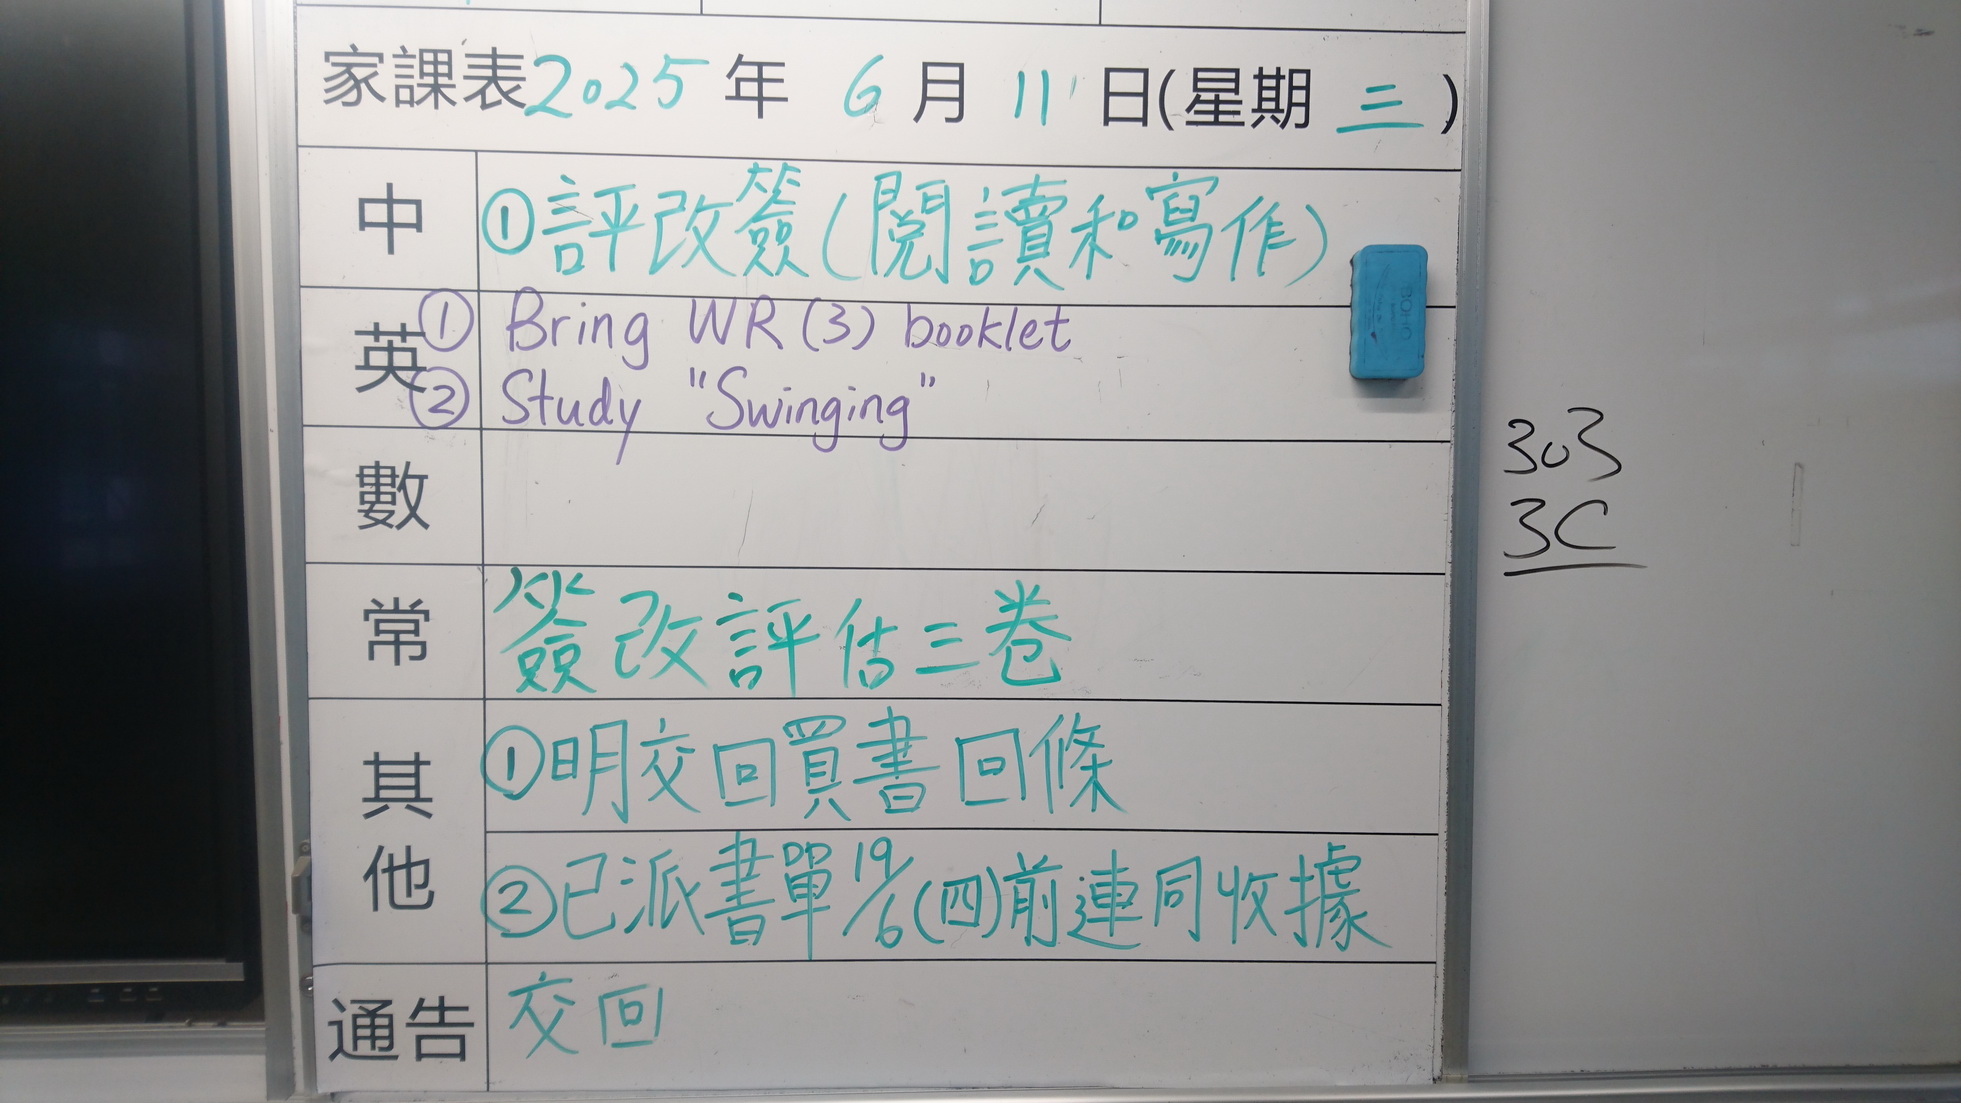 家課表2025年 6月 11日(星期 三)
中 ①評改簽(閱讀和寫作)
英 ① Bring WR (3) booklet
② Study "Swinging"
數
常 簽改評估三卷
其他 ①明交回買書回條
②已派書單19/6(四)前連同收據
通告 交回
303
3C